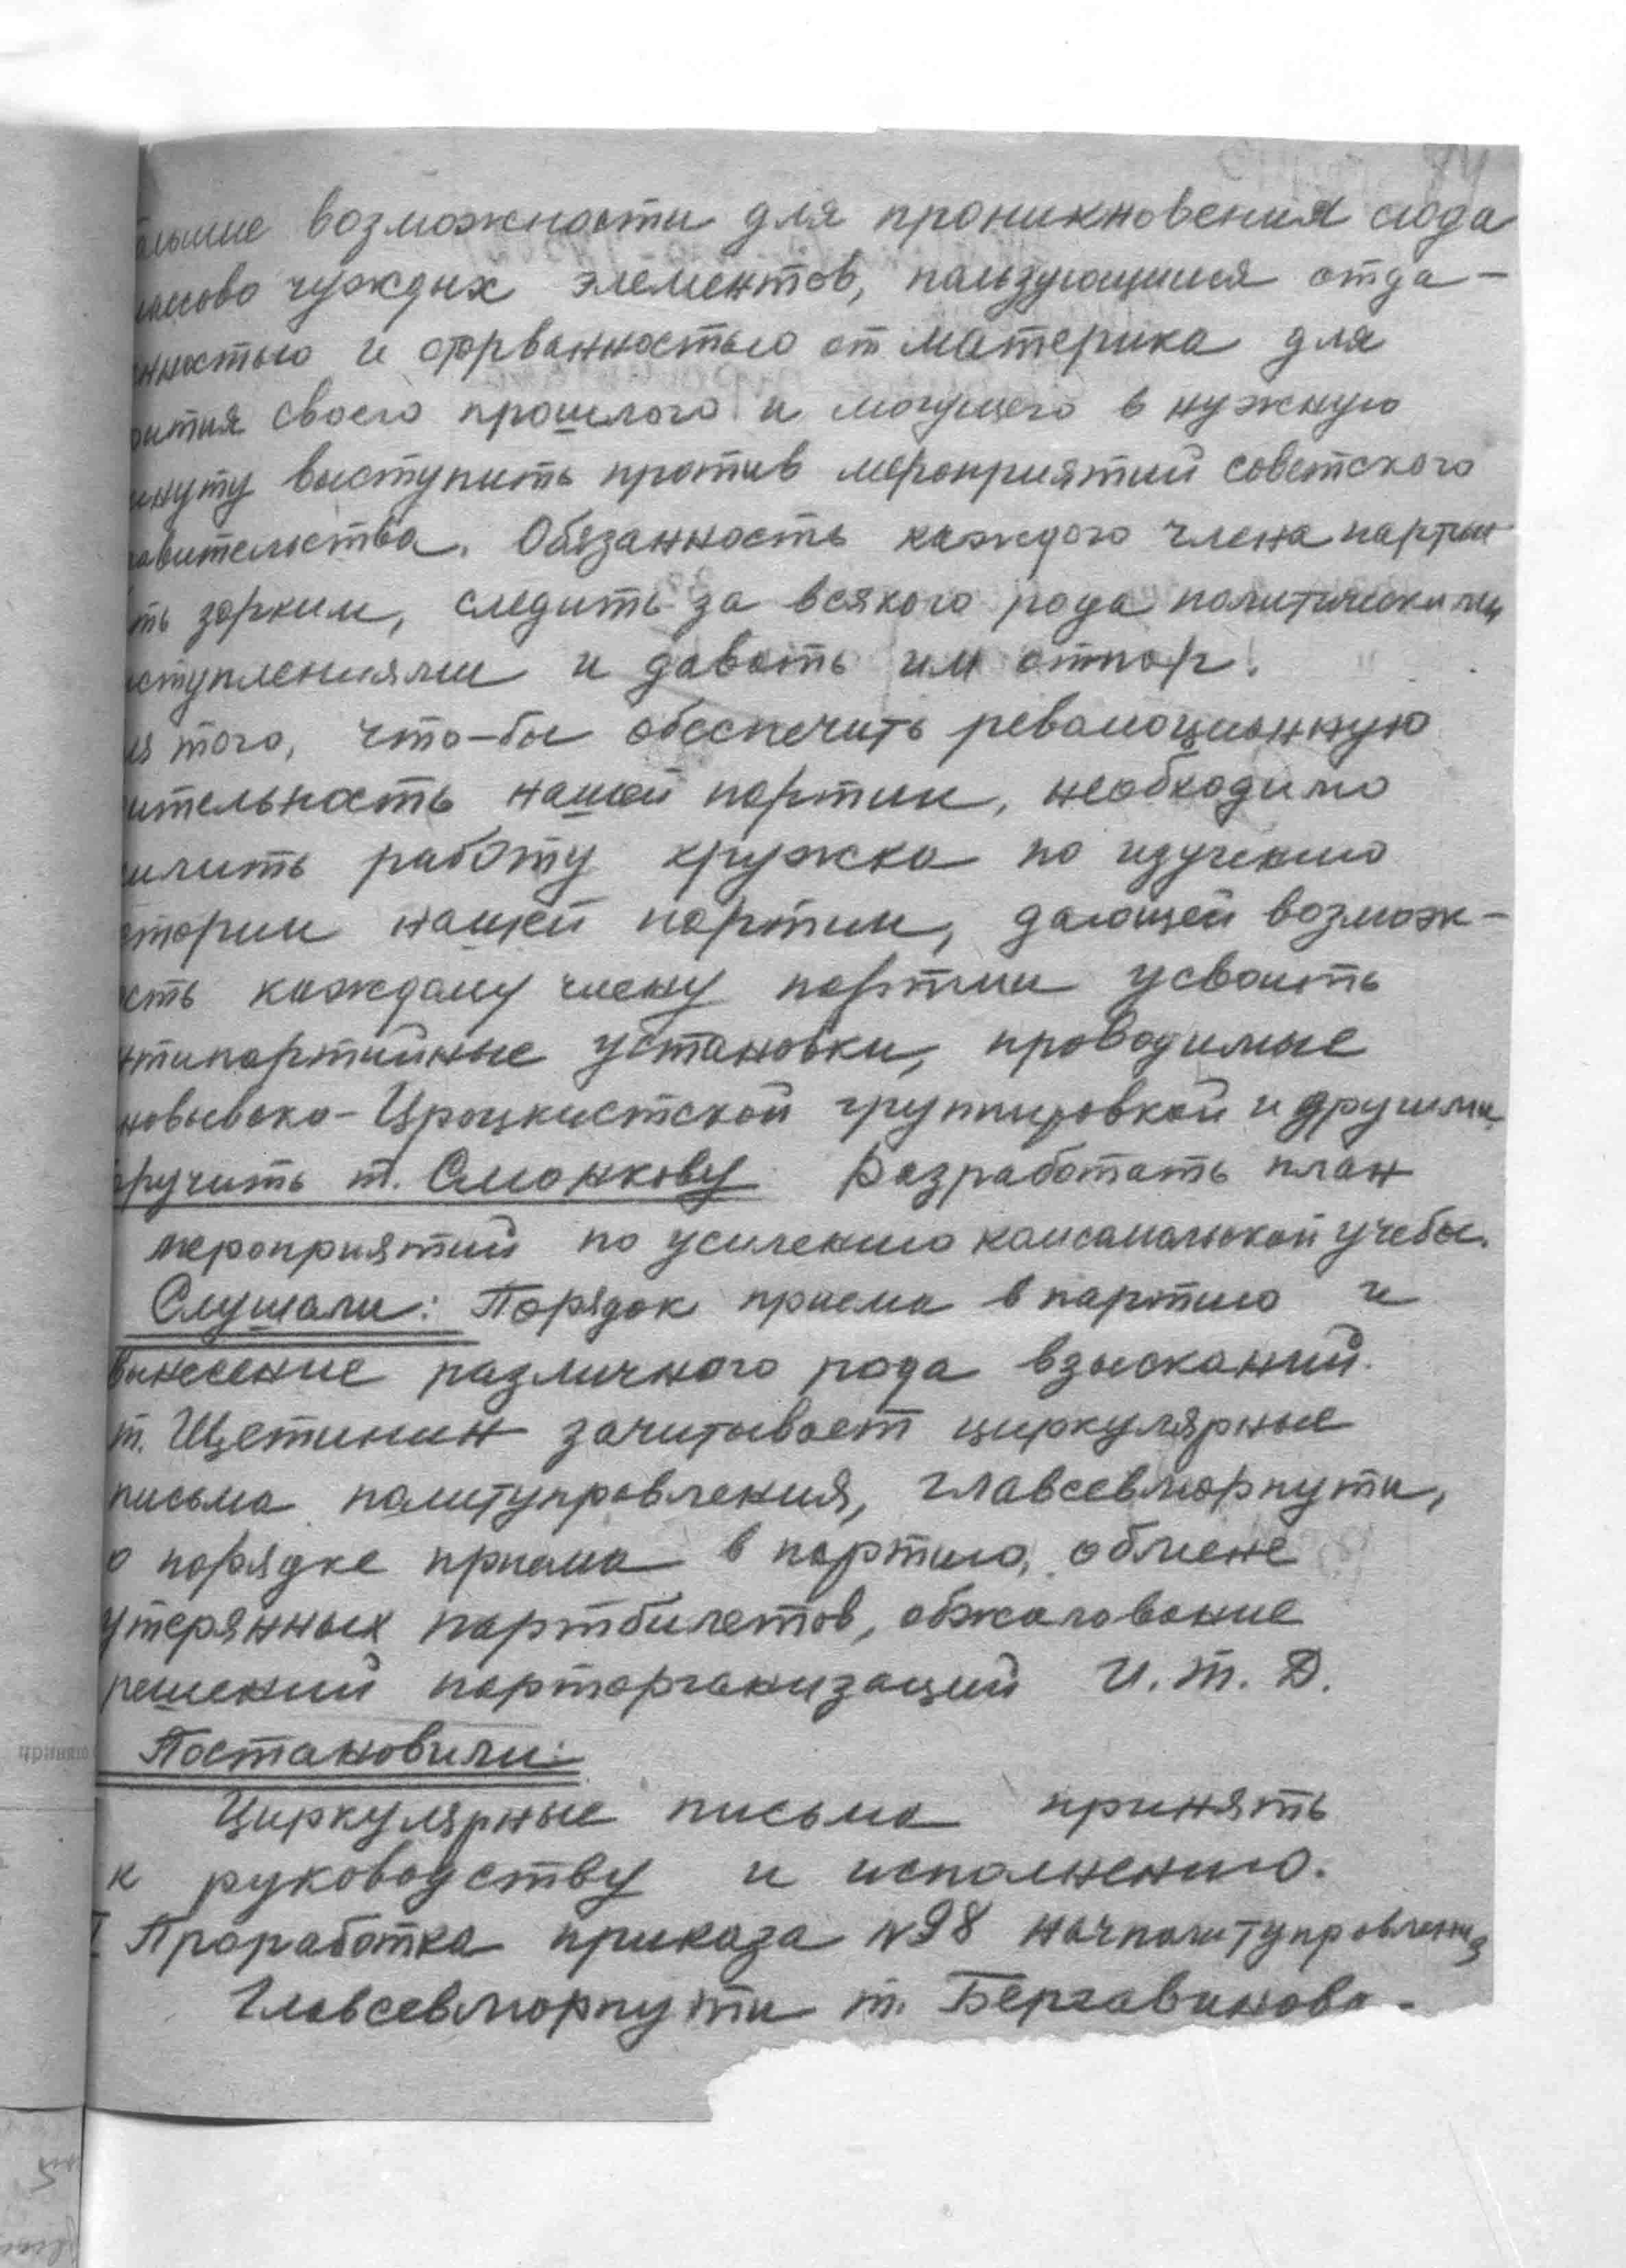 ольшие возможности для проникновения сюда
лассово чуждых элементов, пользующимися отда-
нностью и оторванностью от материка для
рытия своего прошлого и могущего в нужную
инуту выступить против мероприятий советского
равительства. Обязанность каждого члена партии
ть зорким, следить за всякого рода политическими
ыступлениями и давать им отпор.
ля того, что-бы обеспечить революционную
ительность нашей партии, необходимо
илить работу кружка по изучению
стории нашей партии, дающей возмож-
ость каждому члену партии усвоить
нтипартийные установки, проводимые
новьевско-Троцкистской группировкой и другими.
оручить т. Смонкову Разработать план
мероприятий по усилению комсомольской учебы.
Слушали: Порядок приема в партию и
вынесение различного рода взысканий.
т. Щетинин зачитывает циркулярные
письма политуправления, главсевморпути,
о порядке приема в партию, обмене
утерянных партбилетов, обжалование
решений парторганизаций И. Т. Д.
Постановили:
Циркулярные письма принять
к руководству и исполнению.
I Проработка приказа №98 начполитуправления
Главсевморпути т. Бергавинова.